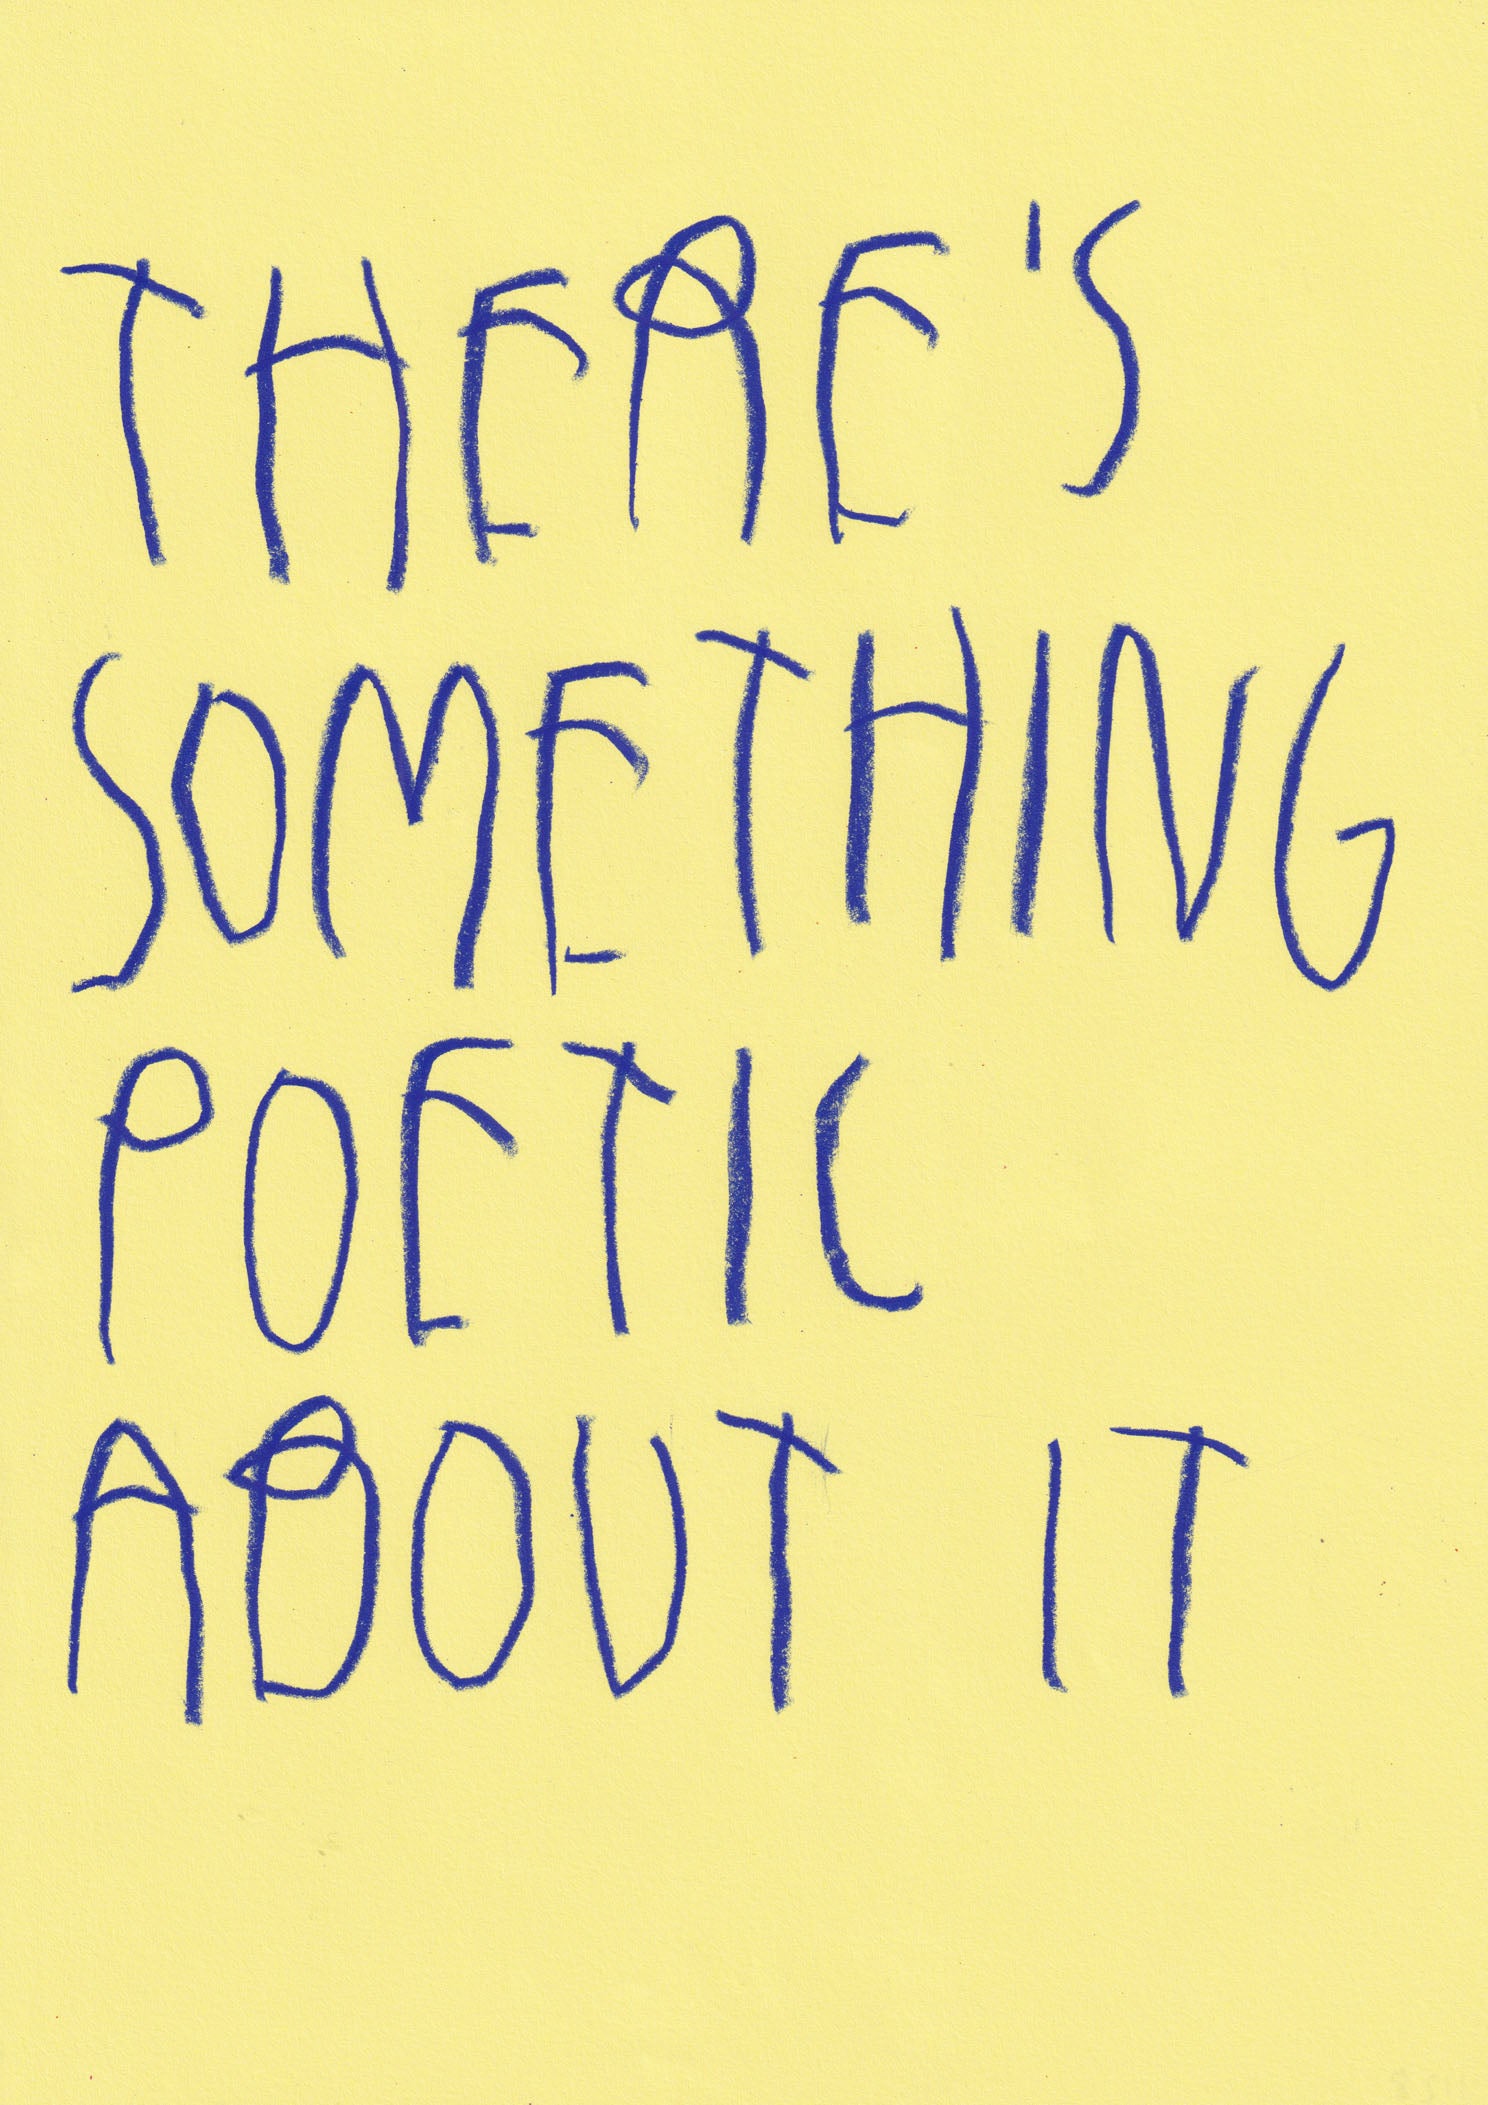 THERE'S
SOMETHING
POETIC
ABOUT IT